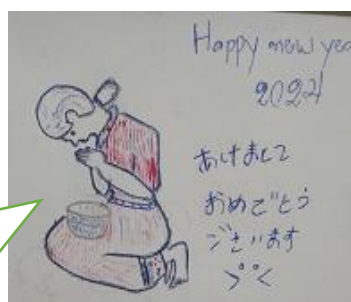 Happy new yea
2024
あけまして
おめでとう
ございます